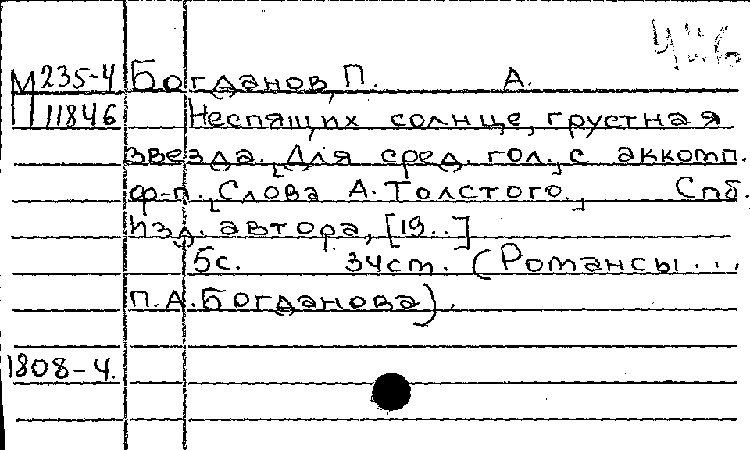 М 235-4 Богданов, П. А.
П 11846 Неспящих солнце, грустная
звезда. [Для сред. гол., с аккомп.
ф-п. [Слова А. Толстого.] Спб.
Изд. автора, [19..]
5с. 34ст. (Романсы ...
П.А.Богданова).
1808-4.